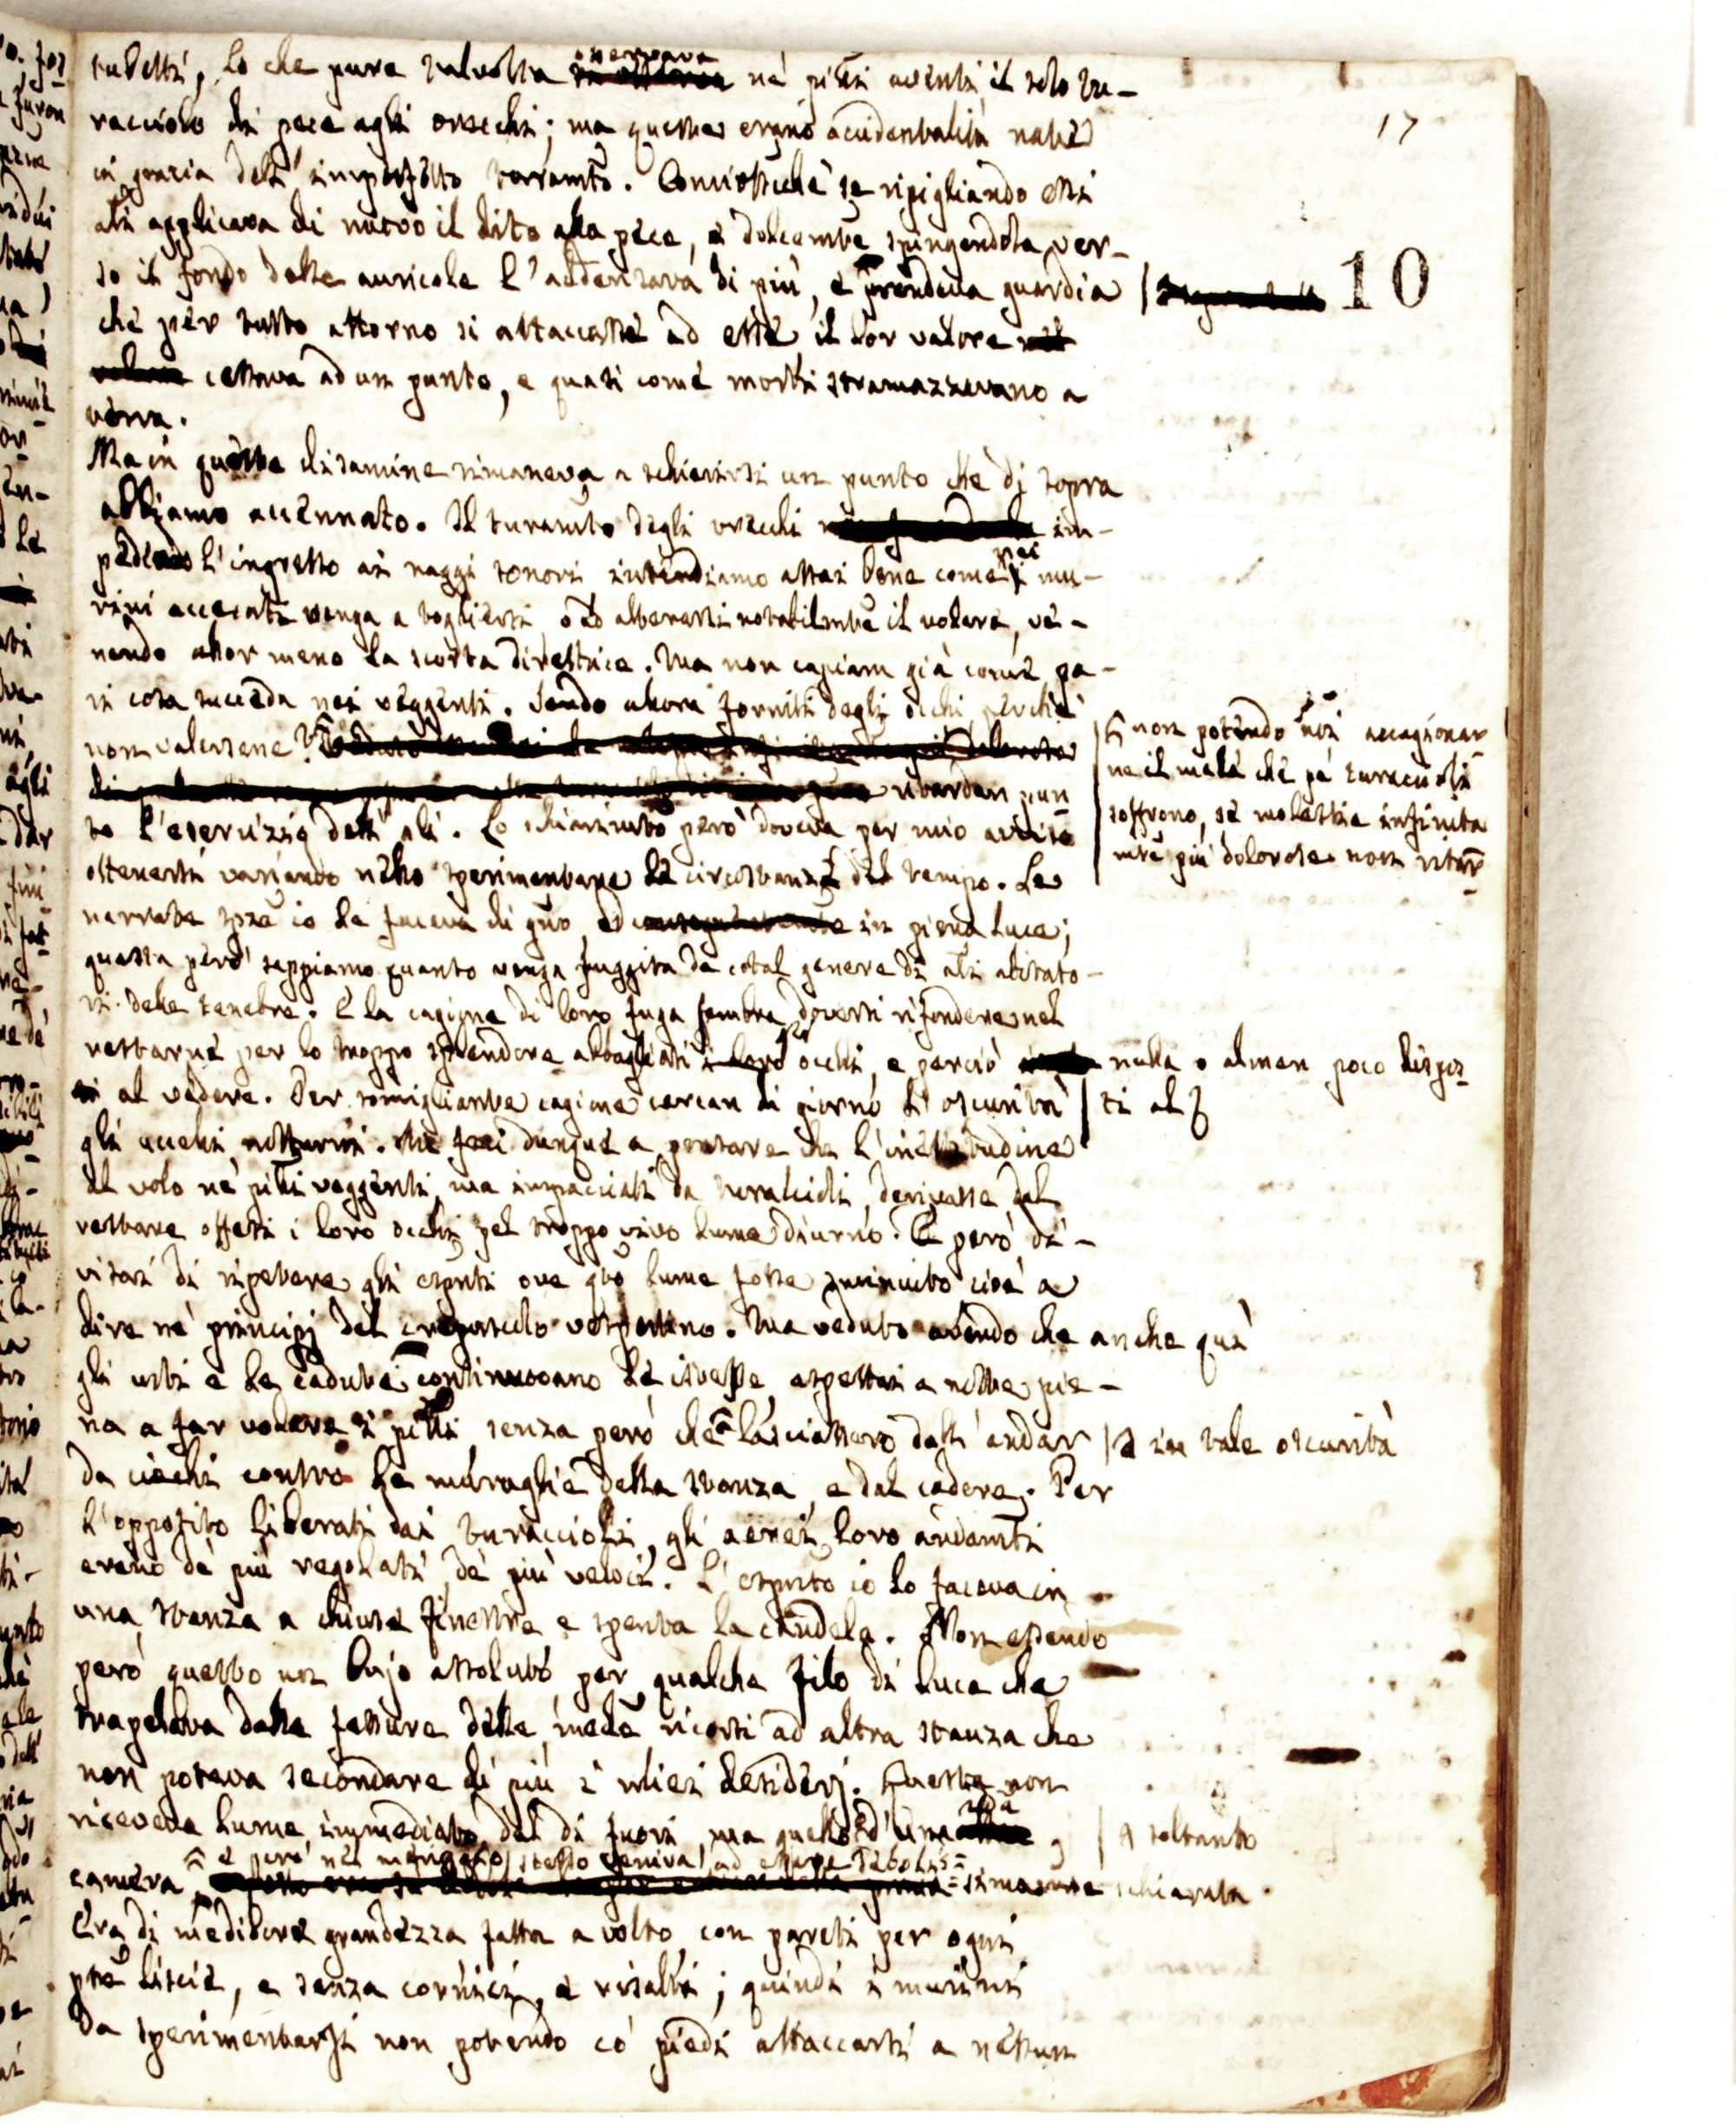 17
10
subetti, lo che pure talvolta osservava ne' pitti aventi il solo tu-
racciolo di pece agli orecchi; ma queste erano accidentalità nate
in grazia dell' imperfetto turamto. Conciossiché se ripigliando essi
ali applicava di nuovo il dito alla pece, e dolcemte spingendola ver-
so il fondo delle auricole l'addensava di più, e prendeva guardia
che per tutto attorno si attaccasse ad esse, il lor valore
cessava ad un punto, e quasi come morti stramazzavano a
terra.
Ma in queste disamine rimaneva a schiarirsi un punto che di sopra
abbiamo accennato. Il turamto degli orecchi im-
pedendo l'ingresso ai raggi sonori intendiamo assai bene come nei mu-
rini accecati venga a togliersi o ad alterarsi notabilmte il volare, ve-
nendo allor meno la scorta direttrice. Ma non capiam già come pa-
ri cosa succeda nei veggenti. Sendo allora forniti degli occhi, perché
non valersene?
non potendo noi accagionar
ne il male che pe' turaccioli
soffrono, se molestie infinita
mte più dolorose non ritar
ritardan pun
to l'esercizio dell' ali. Lo schiarimto però doveva per mio avviso
ottenersi variando nello sperimentare le circostanze del tempo. Le
narrate spze io le faceva di gno, ed in piena luce;
questa però sappiamo quanto venga fuggita da cotal genere di ali abitato-
ri delle tenebre. E la cagione di loro fuga sembra doversi rifondere nel
restarne per lo troppo splendore abbagliati i loro occhi, e perciò nulla o almen poco dispos
ti al
al vedere. Per somigliante cagione cercan di giorno l'oscurità
gli uccelli notturni. Mi feci dunque a pensare che l'inettitudine
al volo ne' pitti veggenti, ma impacciati da turaccioli, derivasse dal
restare offesi i loro occhi pel troppo vivo lume diurno. E però di-
visai di ripetere gli esprti ove qto lume fosse sminuito cioè a
dire ne' principj del crepuscolo vespertino. Ma veduto avendo che anche quì
gli urti e le cadute continuavano le istesse, aspettai a notte pie-
na a far volare i pitti, senza però che lasciassero dall' andar
a in tale oscurità
da ciechi contro le muraglie della stanza, e dal cadere. Per
l'opposito liberati dai turaccioli, gli aerei loro andamti
erano de' più regolati, de' più veloci. L' esprto io lo faceva in
una stanza a chiuse finestre e spenta la candela. Non essendo
però questo un bujo assoluto per qualche filo di luce che
trapelava dalle fessure delle mede, ricorsi ad altra stanza che
non poteva secondare di più i miei desiderj. Questa non
riceveva lume immediato dal di fuori, ma quello d'una
soltanto
e però nel meriggio stesso veniva ad essere debolis=
camera simamte schiarata.
Era di mediocre grandezza fatta a volto, con pareti per ogni
pte liscie, e senza cornici, e risalti; quindi i murini
da sperimentarsi non potendo co' piedi attaccarsi a nessun